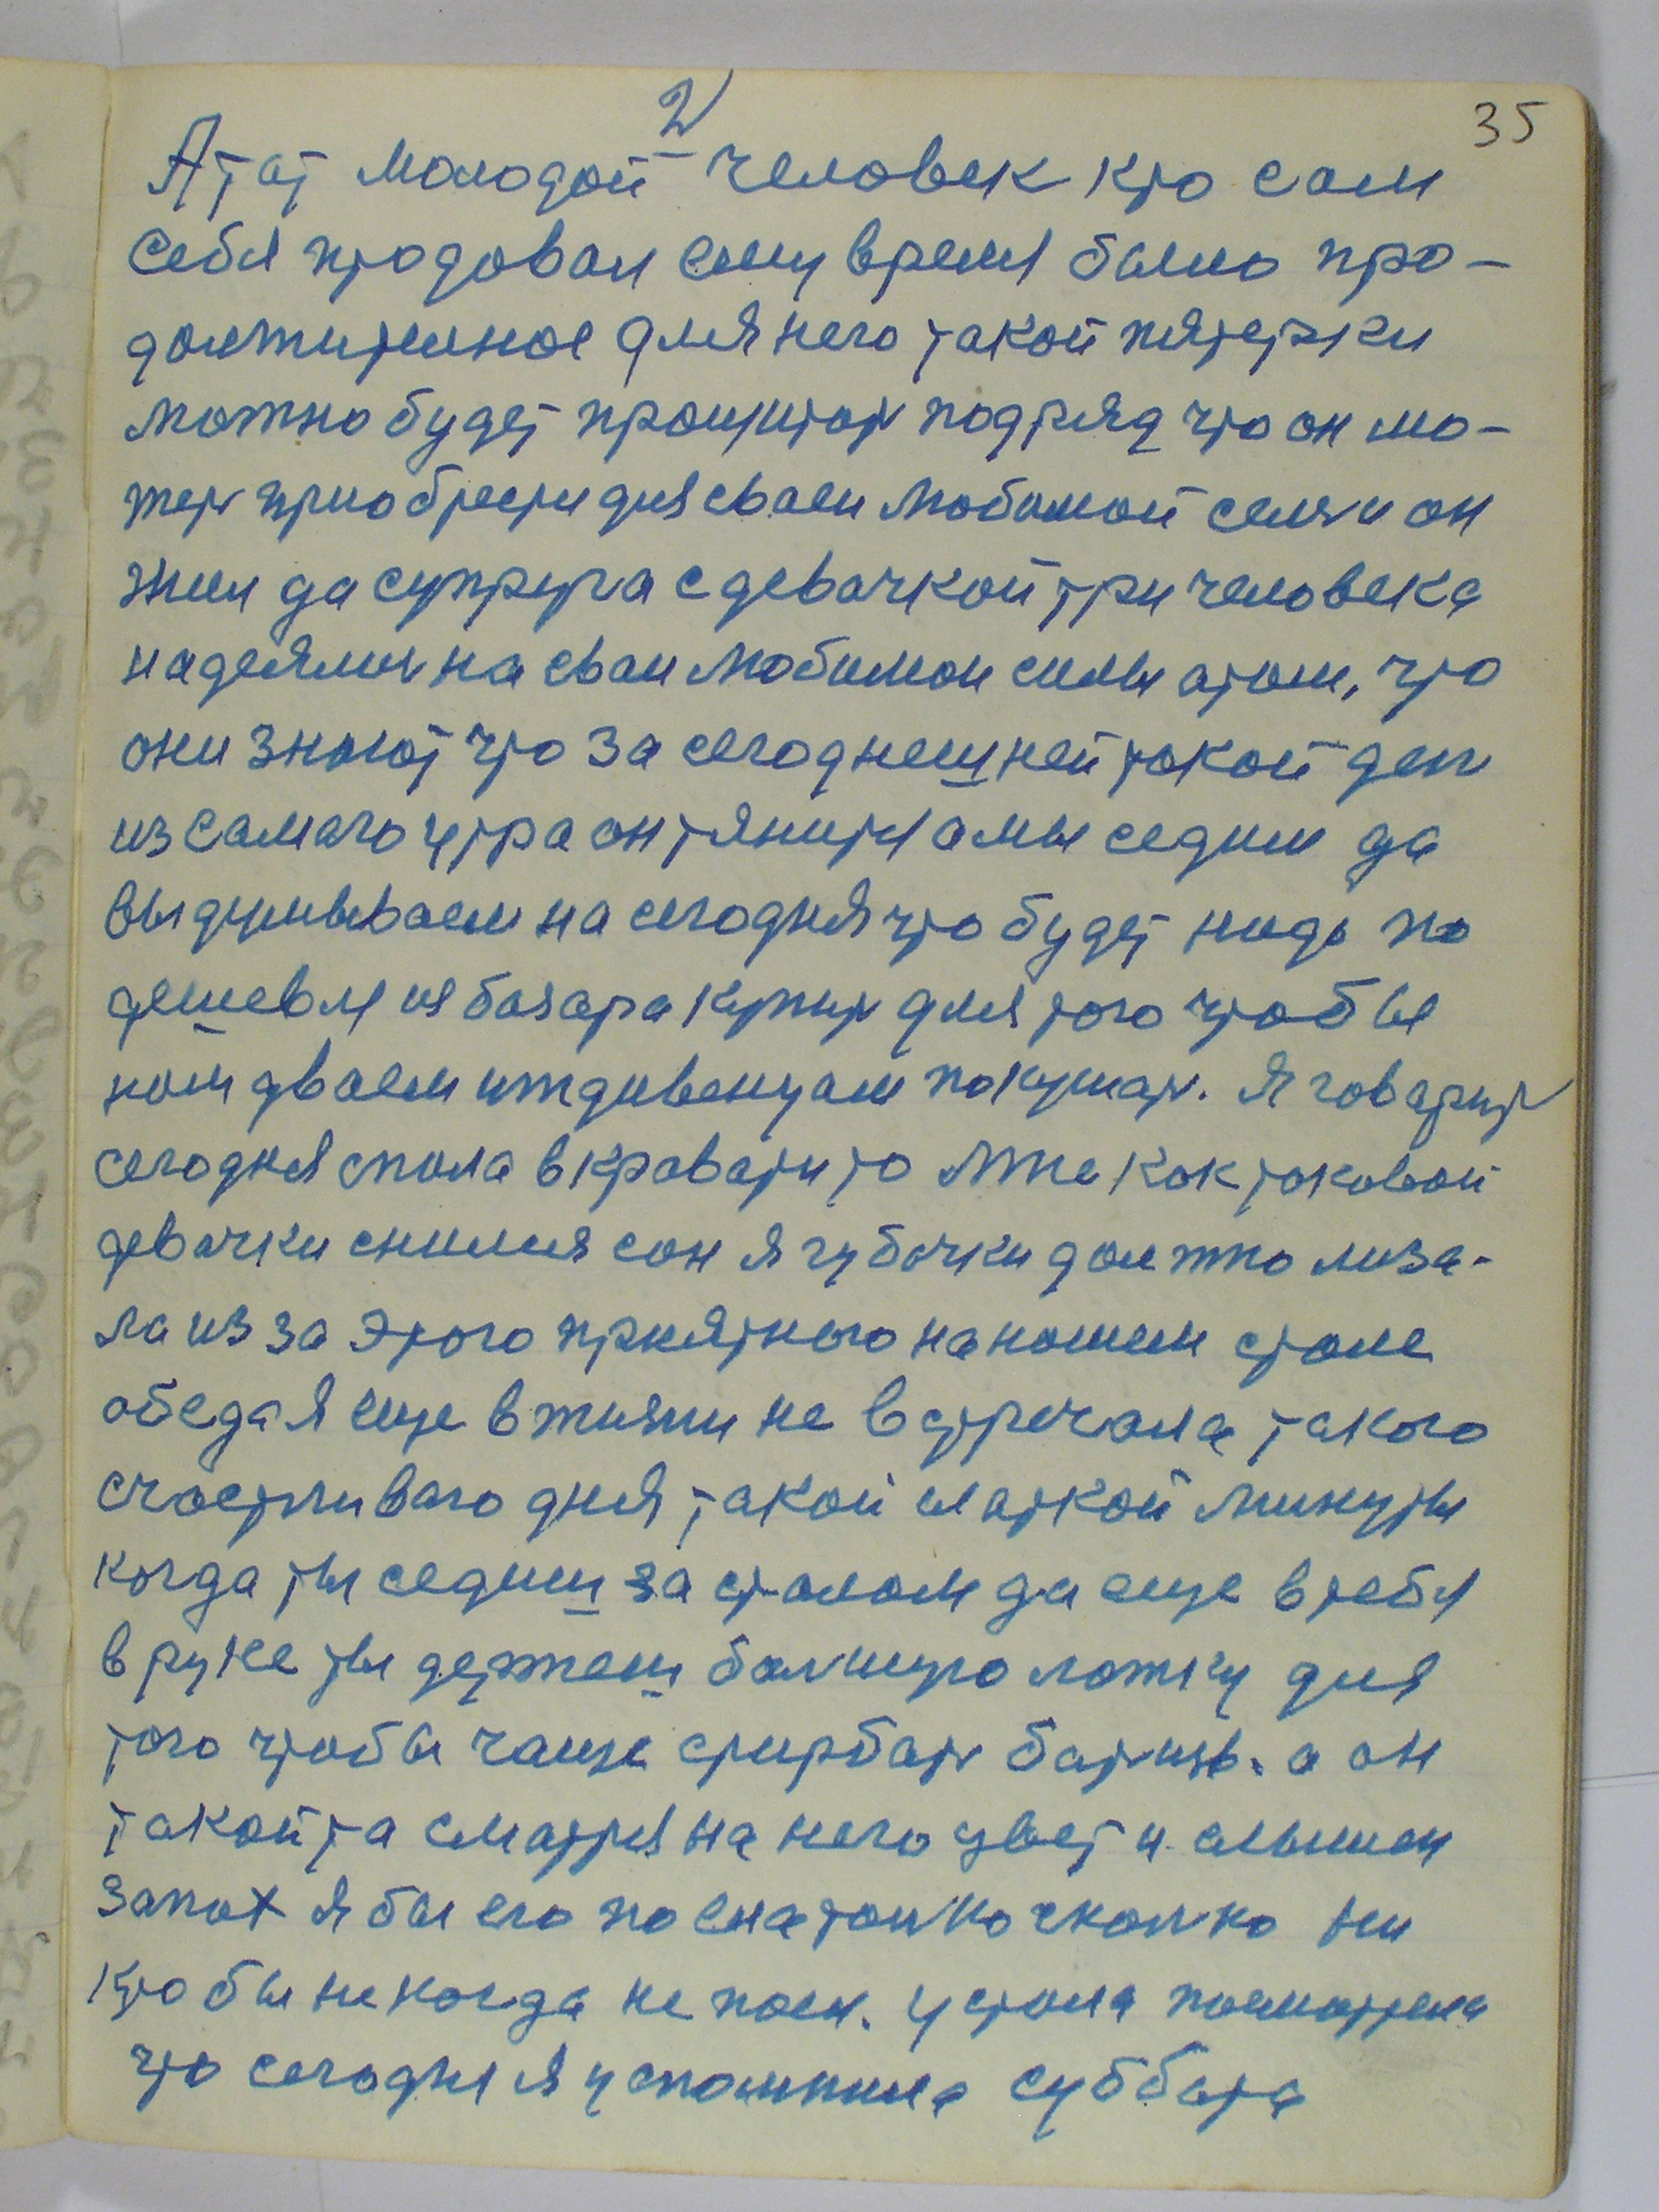 2
35
А тат молодой человек кто сам
себя продовал ему время было про-
должителное для него такой пятерки
можно будет прочитат подряд что он мо-
жет приобрести для сваеи любимой семи он
жил да супруга с девачкой три человека
надеялис на сваи любимои силы атом, что
они знают что за сегоднешней такой ден
из самаго утра он тянится а мы седим да
выдумываем на сегодня что будет надо по
дешевле из базара купит для того чтобы
нам дваем иждивенцам покушат. Я говарит
сегодня спала в кравати то мне как таковой
девачки снился сон я губачки должно лиза-
ла из за этого приятного на нашем столе
обеда я еще в жизни не встречала такого
счастливаго дня такой слаткой минуты
когда ты седиш за сталом да еще в тебя
в руке ты держеш балшую ложку для
того чтобы чаще стирбат батвиь. а он
такой та сматря на него цвет и слышен
запах я бы его поела толко сколко ни
кто бы не когда не поел. у стола посматрела
что сегодня я успомнила суббата